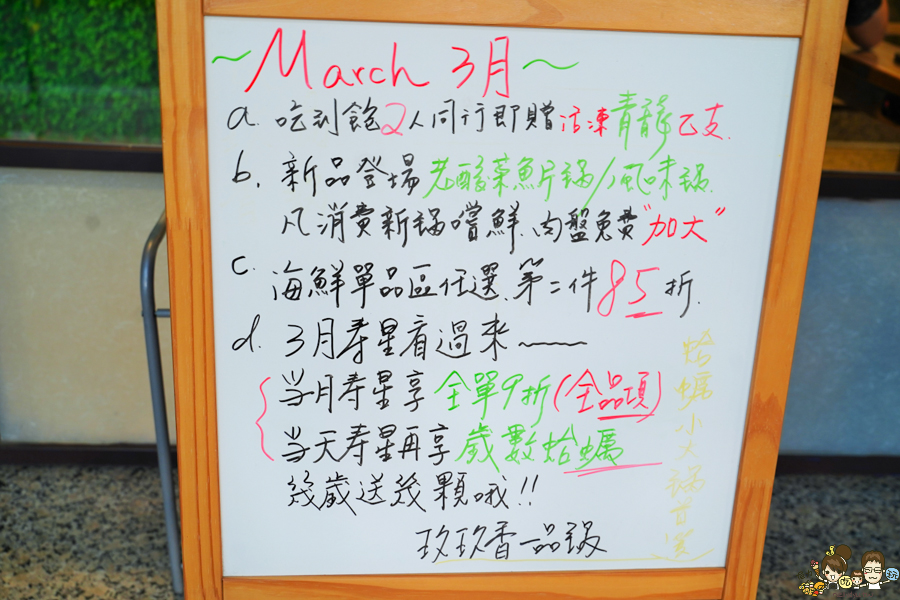 ~March 3月~
a. 吃到飽2人同行即贈活凍青龍乙支.
b. 新品登場老酸菜魚片鍋/風味鍋.
凡消費新鍋嚐鮮.肉盤免費"加大"
c. 海鮮單品區任選.第二件85折.
d. 3月寿星看過來~
当月寿星享全單9折(全品項)
当天寿星再享歲數蛤蠣
幾歲送幾顆哦!!
玫玖香一品鍋
蛤蠣小火鍋